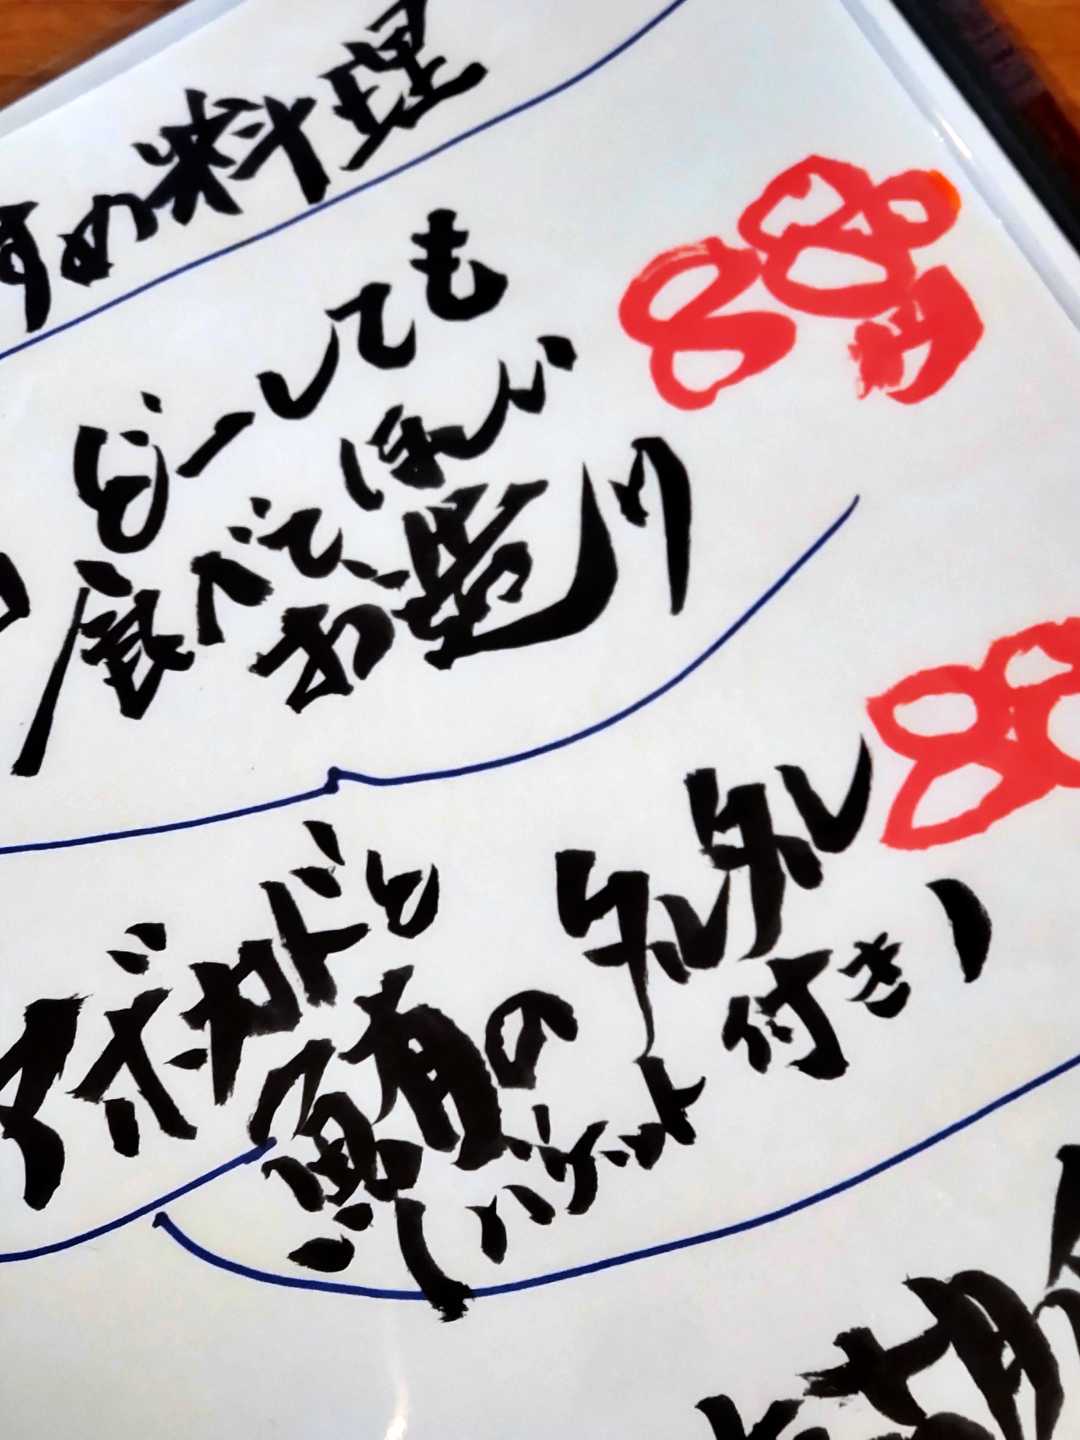 すめ料理
どーしても
食べてほしい
お造り
880円
アボカドと
鮪の
タルタル
バゲット
付き)
88
胡